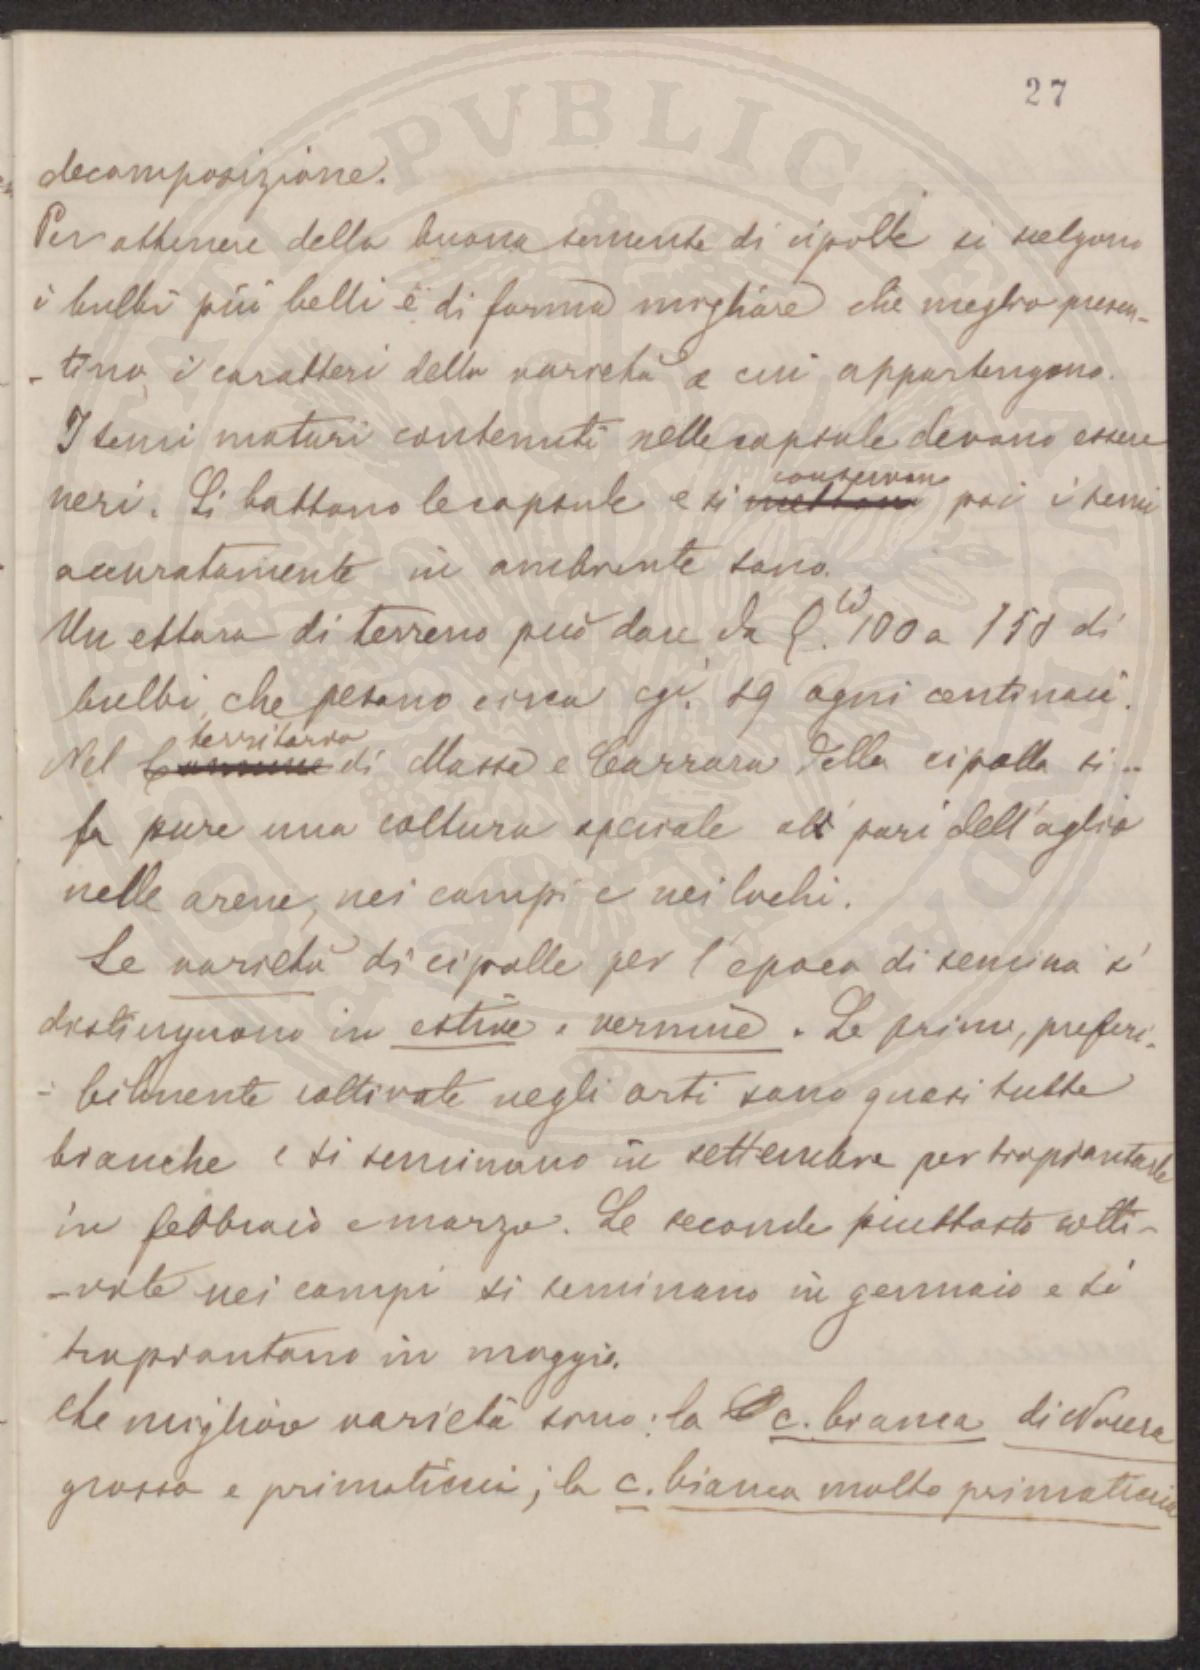 27
decomposizione.
Per ottenere della buona semente di cipolle si scelgono
i bulbi più belli e di forma migliore che meglio presen-
-tino i caratteri della varietà a cui appartengono.
I semi maturi contenuti nelle capsule devono essere
neri. Si battono le capsule e si mettono conservan poi i semi
accuratamente in ambiente sano.
Un ettaro di terreno può dare da Q.li 100 a 150 di
bulbi, che pesano circa cgi. 59 ogni centinaii.
Nel Comune territorio di Massa e Carrara della cipolla si
fa pure una coltura speciale al pari dell'aglio
nelle arene, nei campi e nei luchi.
Le varietà di cipolle per l'epoca di semina si
distinguono in estive e vernine. Le prime, preferi-
-bilmente coltivate negli orti sono quasi tutte
bianche e si seminano in settembre per trapiantarle
in febbraio e marzo. Le seconde piuttosto colti-
-vate nei campi si seminano in gennaio e si
trapiantano in maggio.
Le migliori varietà sono: la c. bianca di Nocera
grossa e primaticcia; la c. bianca molto primaticcia
PVBLICAE